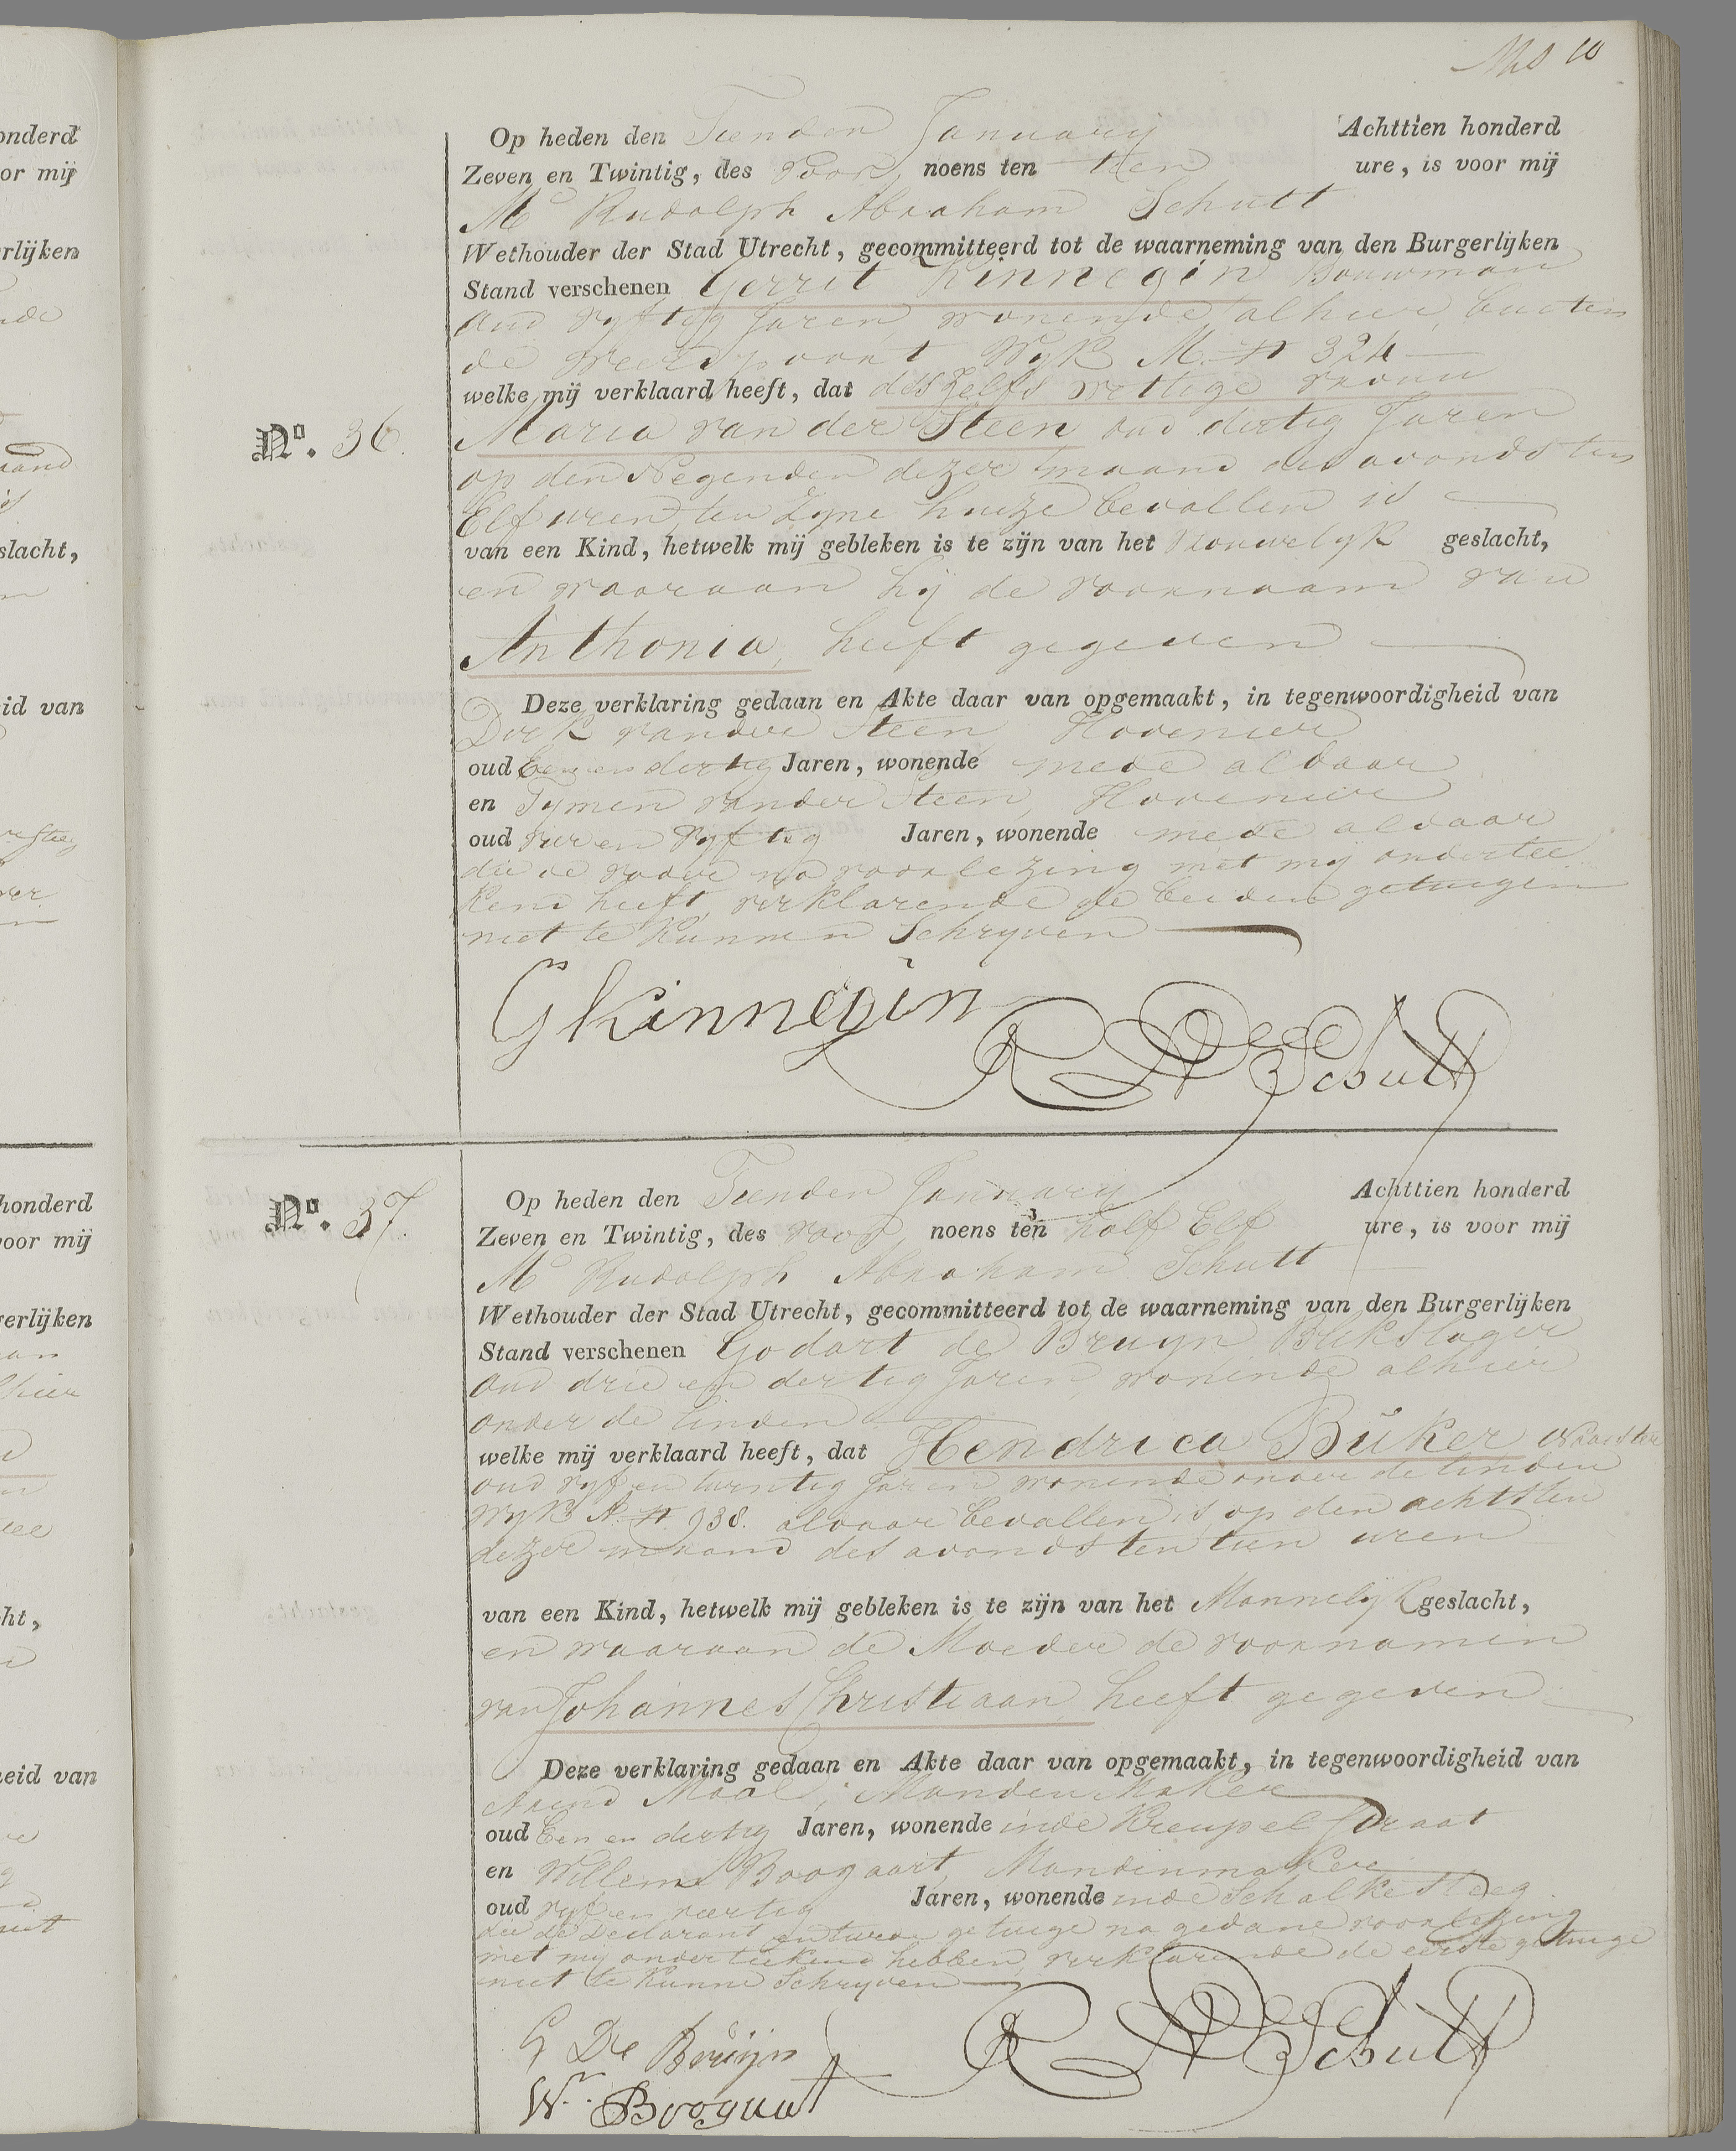 10
Op heden den Tienden January Achttien honderd
Zeven en Twintig, des voor noens ten tien ure, is voor mij
Mr Rudolph Abraham Schutt
Wethouder der Stad Utrecht, gecommitteerd tot de waarneming van den Burgerlijken
Stand verschenen Gerrit Kinnegin Bouwman
oud vyftig Jaren, wonende alhier buiten
de Weerdspoort Wyk M. N 324
welke mij verklaard heeft, dat deszelfs wettige vrouw
No. 36.
Maria van der Steen oud dertig Jaren
op den Negenden dezer maand des avonds ten
Elf uren, ten zyne huize bevallen is
van een Kind, hetwelk mij gebleken is te zijn van het Vrouwelyk geslacht,
en waaraan hij de voornaam van
Anthonia, heeft gegeven
Deze verklaring gedaan en Akte daar van opgemaakt, in tegenwoordigheid van
Dirk van der Steen Hovenier
oud Een en dertig Jaren, wonende mede aldaar
en Tymen van der Steen, Hovenier
oud vier en vyftig Jaren, wonende mede aldaar
die de vader na voorlezing met my ondertee
kend heeft, verklarende de beiden getuigen
niet te kunnen Schryven
G Kinnegin
R A Schutt
No. 37.
Op heden den Tienden January Achttien honderd
Zeven en Twintig, des voor noens ten half Elf ure, is voor mij
Mr Rudolph Abraham Schutt
Wethouder der Stad Utrecht, gecommitteerd tot de waarneming van den Burgerlijken
Stand verschenen Godart de Bruyn Blikslager
oud drie en dertig Jaren, wonende alhier
onder de linden
welke mij verklaard heeft, dat Hendrica Büker Naaister
oud vyf en twintig Jaren wonende onder de linden
Wyk A. N. 938. aldaar bevallen is op den achtsten
dezer maand des avonds ten tien uren
van een Kind, hetwelk mij gebleken is te zijn van het Mannelyk geslacht,
en waaraan de Moeder de voornamen
van Johannes Christiaan heeft gegeven
Deze verklaring gedaan en Akte daar van opgemaakt, in tegenwoordigheid van
Arend Maal, Manden Maker
oud Een en dertig Jaren, wonende in de Kreupelstraat
en Willem Boogaart, Mandenmaker
oud vyf en veertig Jaren, wonende in de Schalkesteeg
die de Declarant en twede getuige na gedane voorlezing
met my ondertekend hebben, verklarende de eerste getuige
niet te kunne Schryven
G De Bruijn
R A Schutt
Wm Boogaart